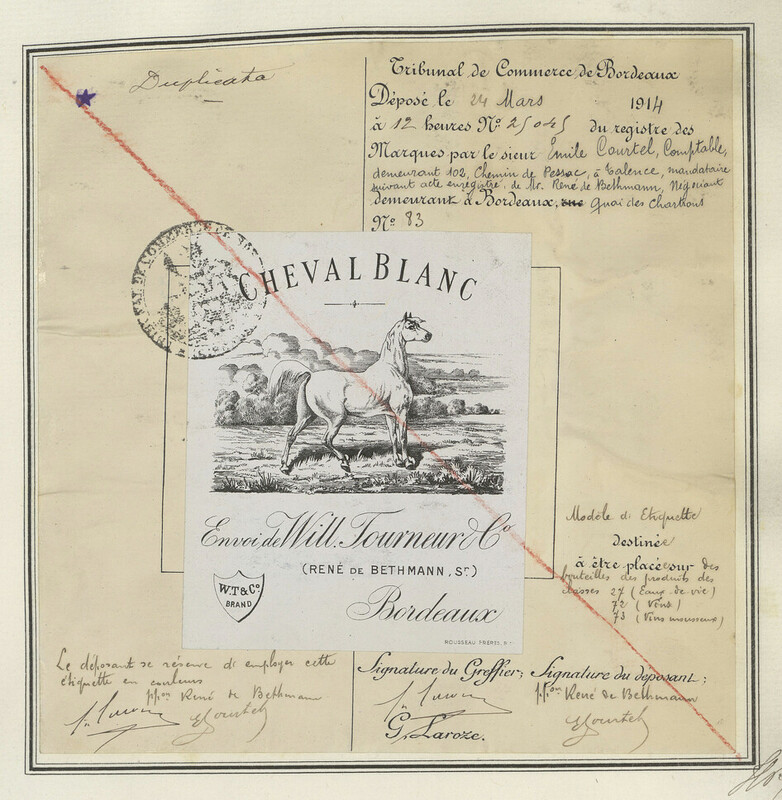 Duplicata
Tribunal de Commerce de Bordeaux
Déposé le 24 Mars 1914
à 12 heures No. 25045 du registre des
Marques par le sieur Emile Courtel, Comptable,
demeurant 102, Chemin de Pessac, à Talence, mandataire
suivant acte enregistré, de Mr. René de Bethmann, Négociant
demeurant à Bordeaux, rue Quai des Chartrons
No. 83
CHEVAL BLANC
Envoi de Will. Tourneur & Co
(RENÉ DE BETHMANN, Sr)
W.T & Co.
BRAND
Bordeaux
ROUSSEAU FRÈRES,
Modèle d'Etiquette
destinée
à être placée sur des
bouteilles des produits des
classes 27 (Eaux-de-vie)
72 (Vins)
73 (Vins mousseux)
Le déposant se réserve d'employer cette
étiquette en couleurs
pp on René de Bethmann
ECourtel
Signature du Greffier;
G. Laroze.
Signature du déposant:
pp on René de Bethmann
ECourtel